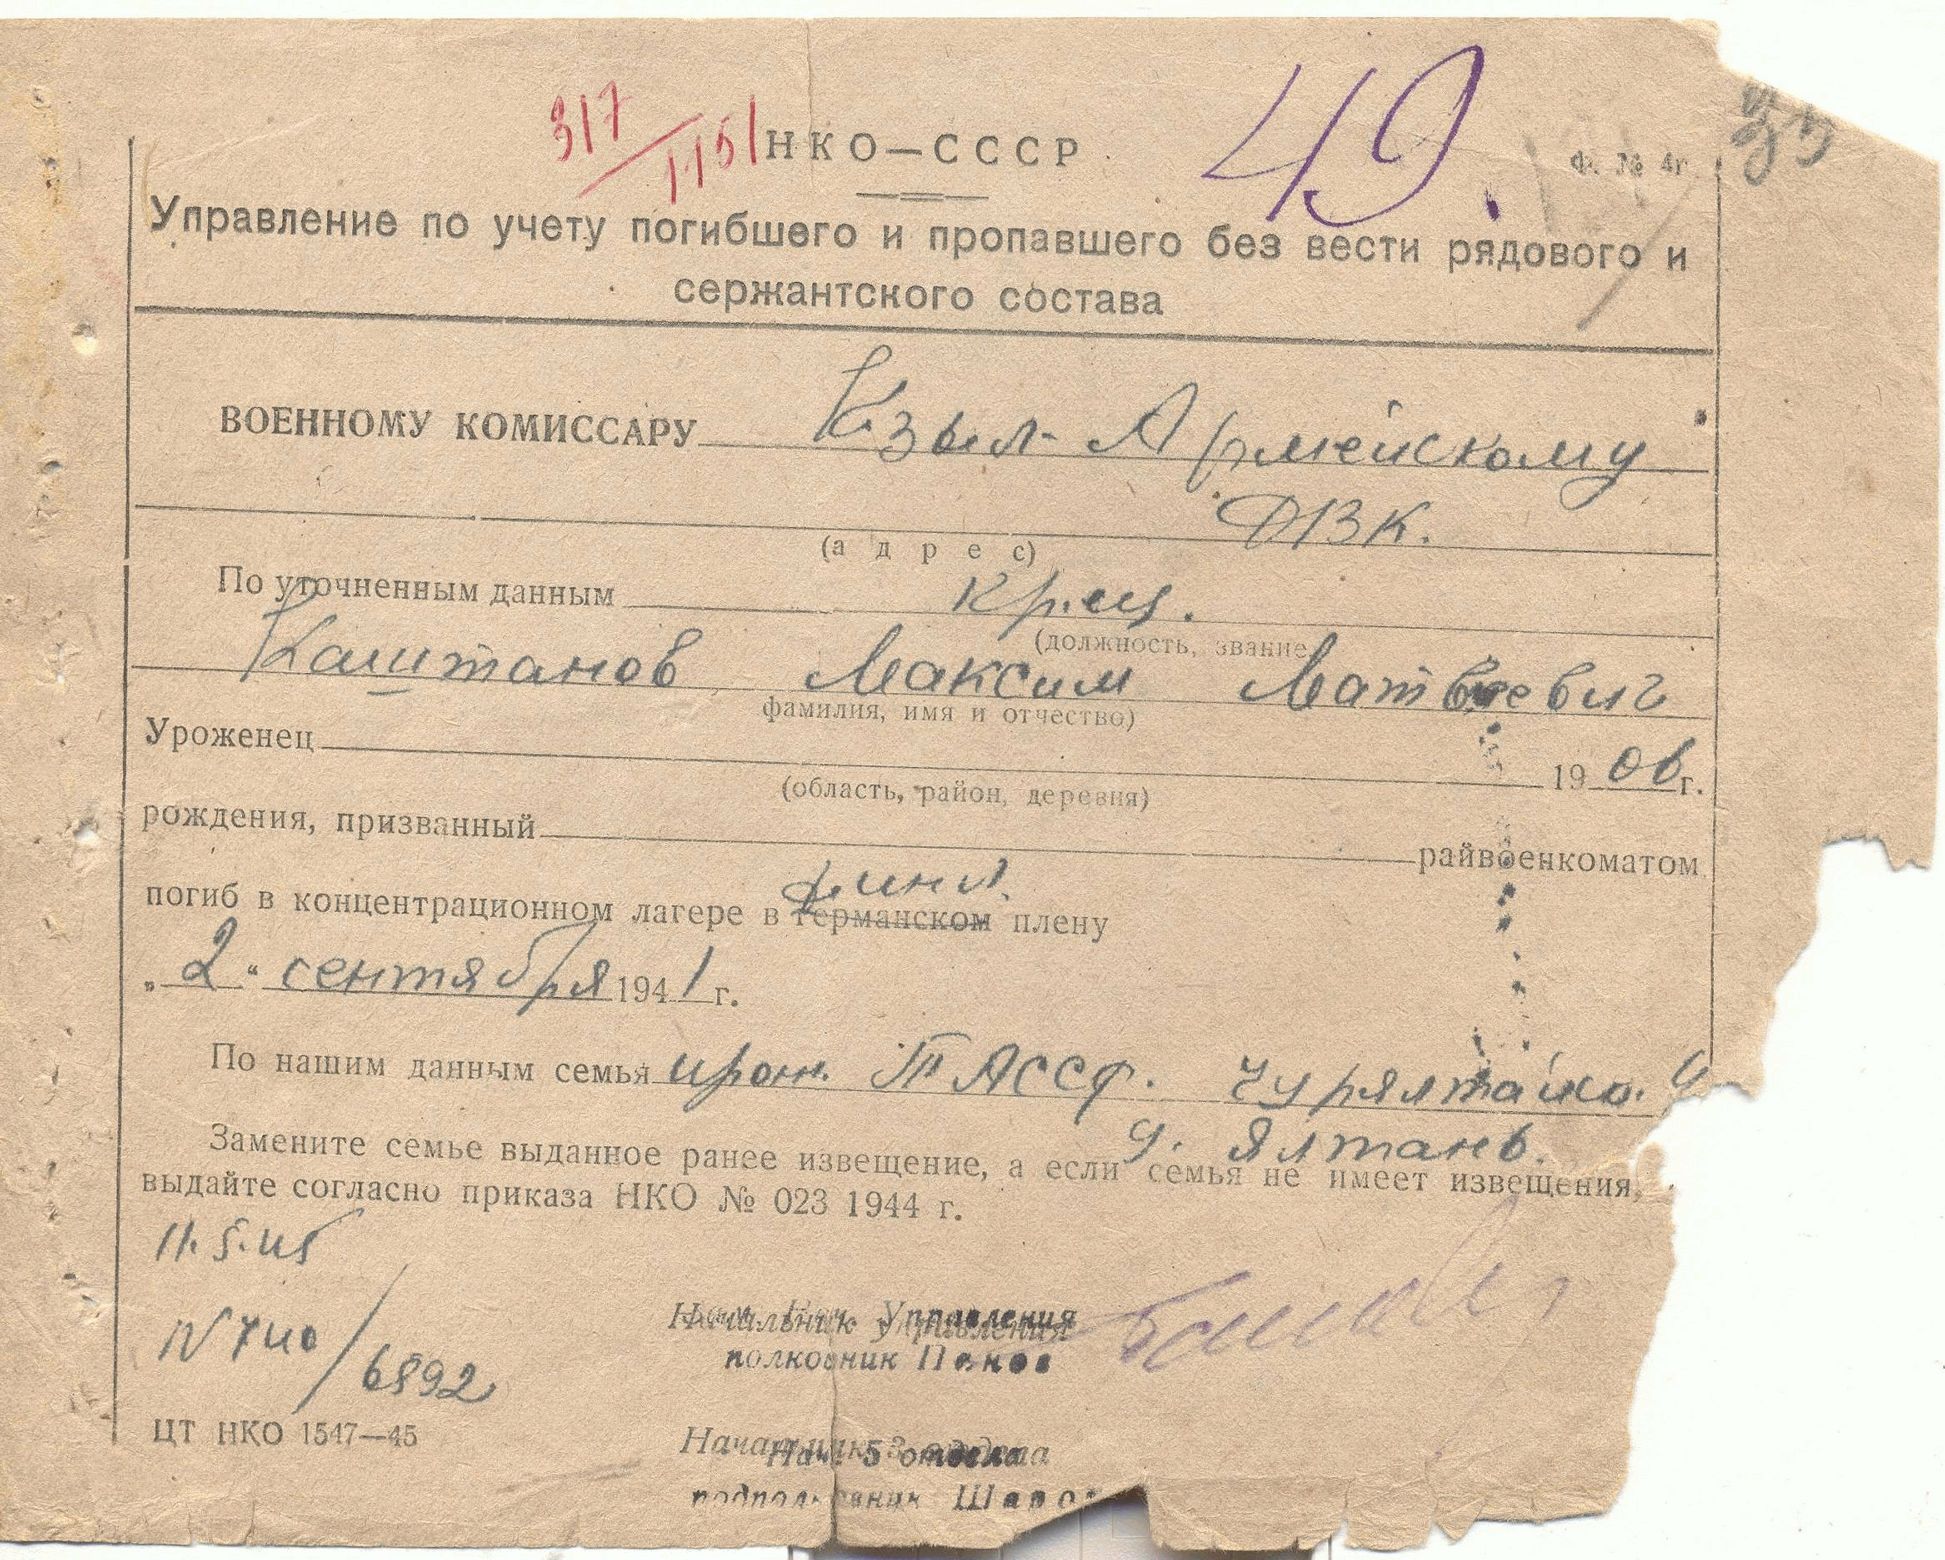 317/1151
49.
33
НКО—СССР
Ф. № 4г
Управление по учету погибшего и пропавшего без вести рядового и
сержантского состава
ВОЕННОМУ КОМИССАРУ Кзыл-Армейскому
РВК.
(адрес)
По уточненным данным кр-ец.
(должность, звание
Каштанов Максим Матвеевич
фамилия, имя и отчество)
Уроженец 1906 г.
(область, район, деревня)
рождения, призванный райвоенкоматом
финл.
погиб в концентрационном лагере в германском плену
„2“ сентября 1941 г.
По нашим данным семья прож. ТАССР.
д. Ялтань.
Замените семье выданное ранее извещение, а если семья не имеет извещения,
выдайте согласно приказа НКО № 023 1944 г.
11.5.45
N 740/6892
Начальник Управления
полковник Панов
ЦТ НКО 1547—45
Нач. 5 отдела
подполковник